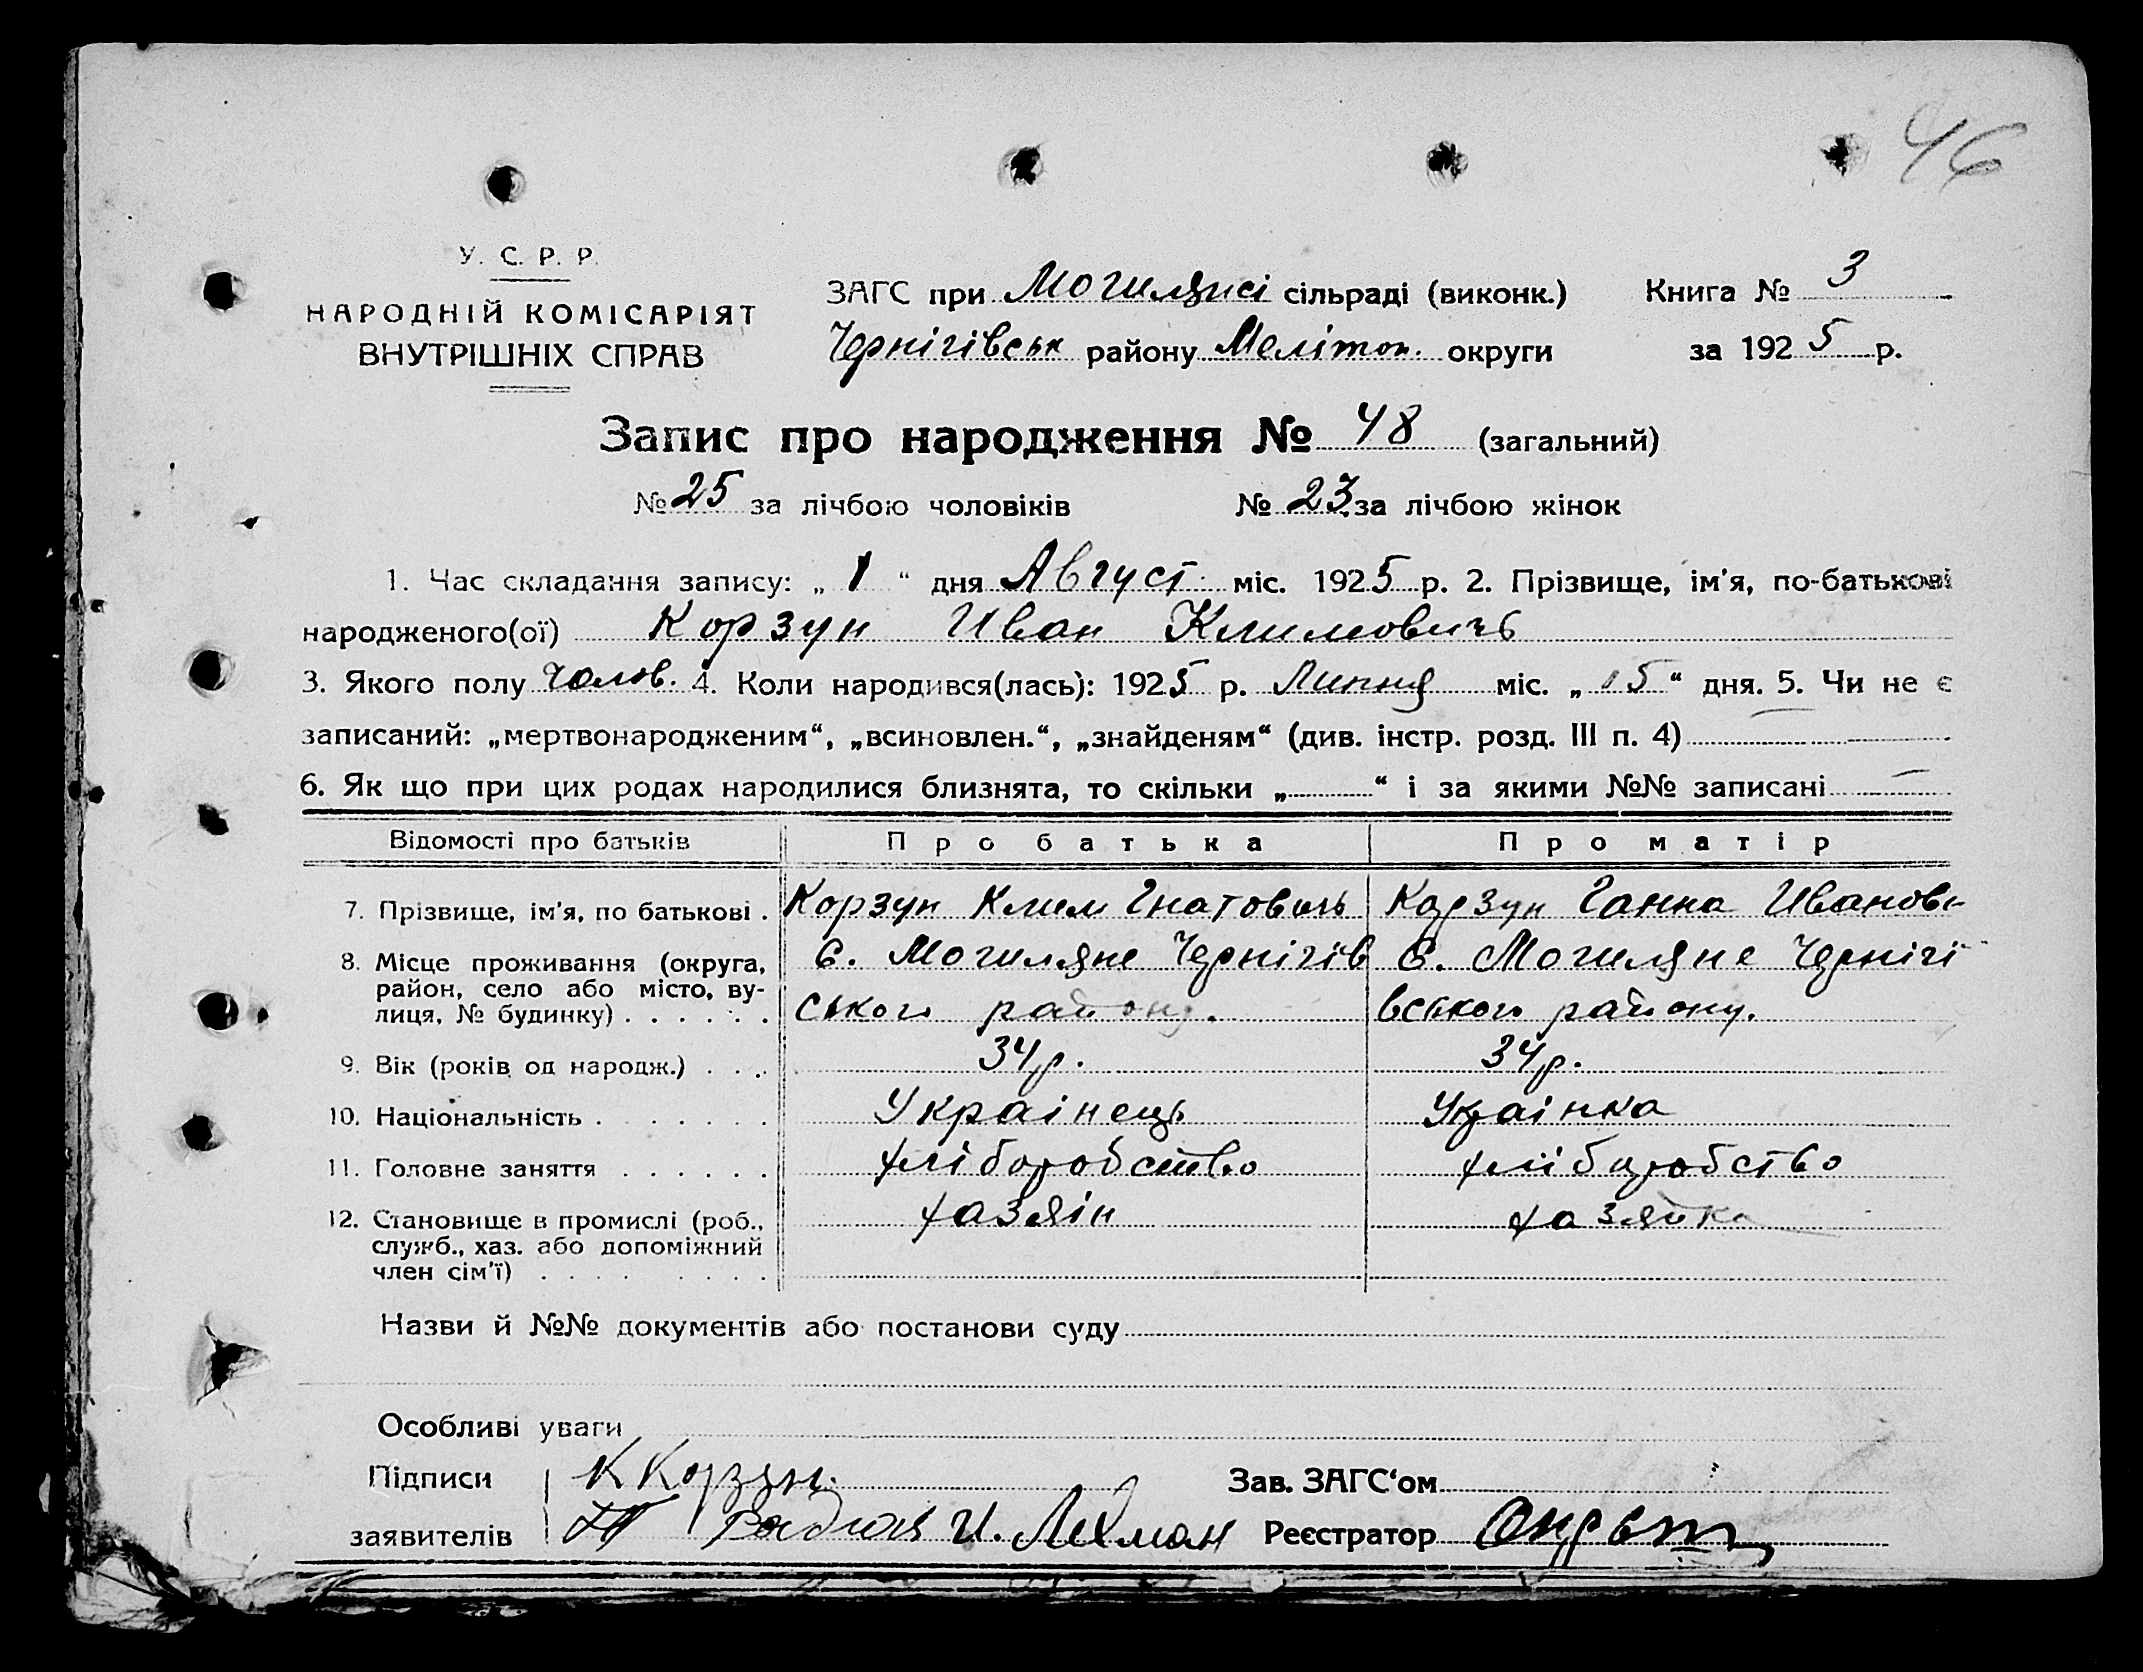 46
У. С. Р. Р.
НАРОДНІЙ КОМІСАРІЯТ
ВНУТРІШНІХ СПРАВ
ЗАГС при Могиляисі сільраді (виконк.) Книга № 3
Чернігівськ району Мелітоп. округи за 1925 р.
Запис про народження № 48 (загальний)
№ 25 за лічбою чоловіків № 23 за лічбою жінок
1. Час складання запису: „ 1 “ дня Август міс. 1925 р. 2. Прізвище, ім'я, по-батькові
народженого(ої) Корзун Иван Климовичъ
3. Якого полу Чолов. 4. Коли народився(лась): 1925 р. Липня міс. „ 15 “ дня. 5. Чи не є
записаний: „мертвонародженим“, „всиновлен.“, „знайденям“ (див. інстр. розд. III п. 4)
6. Як що при цих родах народилися близнята, то скільки „ “ і за якими №№ записані —
Відомості про батьків Про батька Про матір
7. Прізвище, ім'я, по батькові . Корзун Клим Гнатовичь Корзун Ганна Иванов
8. Місце проживання (округа, с. Могиляне Чернігів с. Могиляне Чернігі
район, село або місто, ву-
лиця, № будинку) . . . . . . ського району. вського району.
9. Вік (років од народж.) . . . 34 р. 34 р.
10. Національність . . . . . . . Украінець Украінка
11. Головне заняття . . . . . . хліборобство хліборобство
12. Становище в промислі (роб., хазяін хазяйка
служб., хаз. або допоміжний
член сім'ї) . . . . . . . .
Назви й №№ документів або постанови суду
Особливі уваги
Підписи К Корзун. Зав. ЗАГС‘ом
заявителів И. Лехман Реєстратор